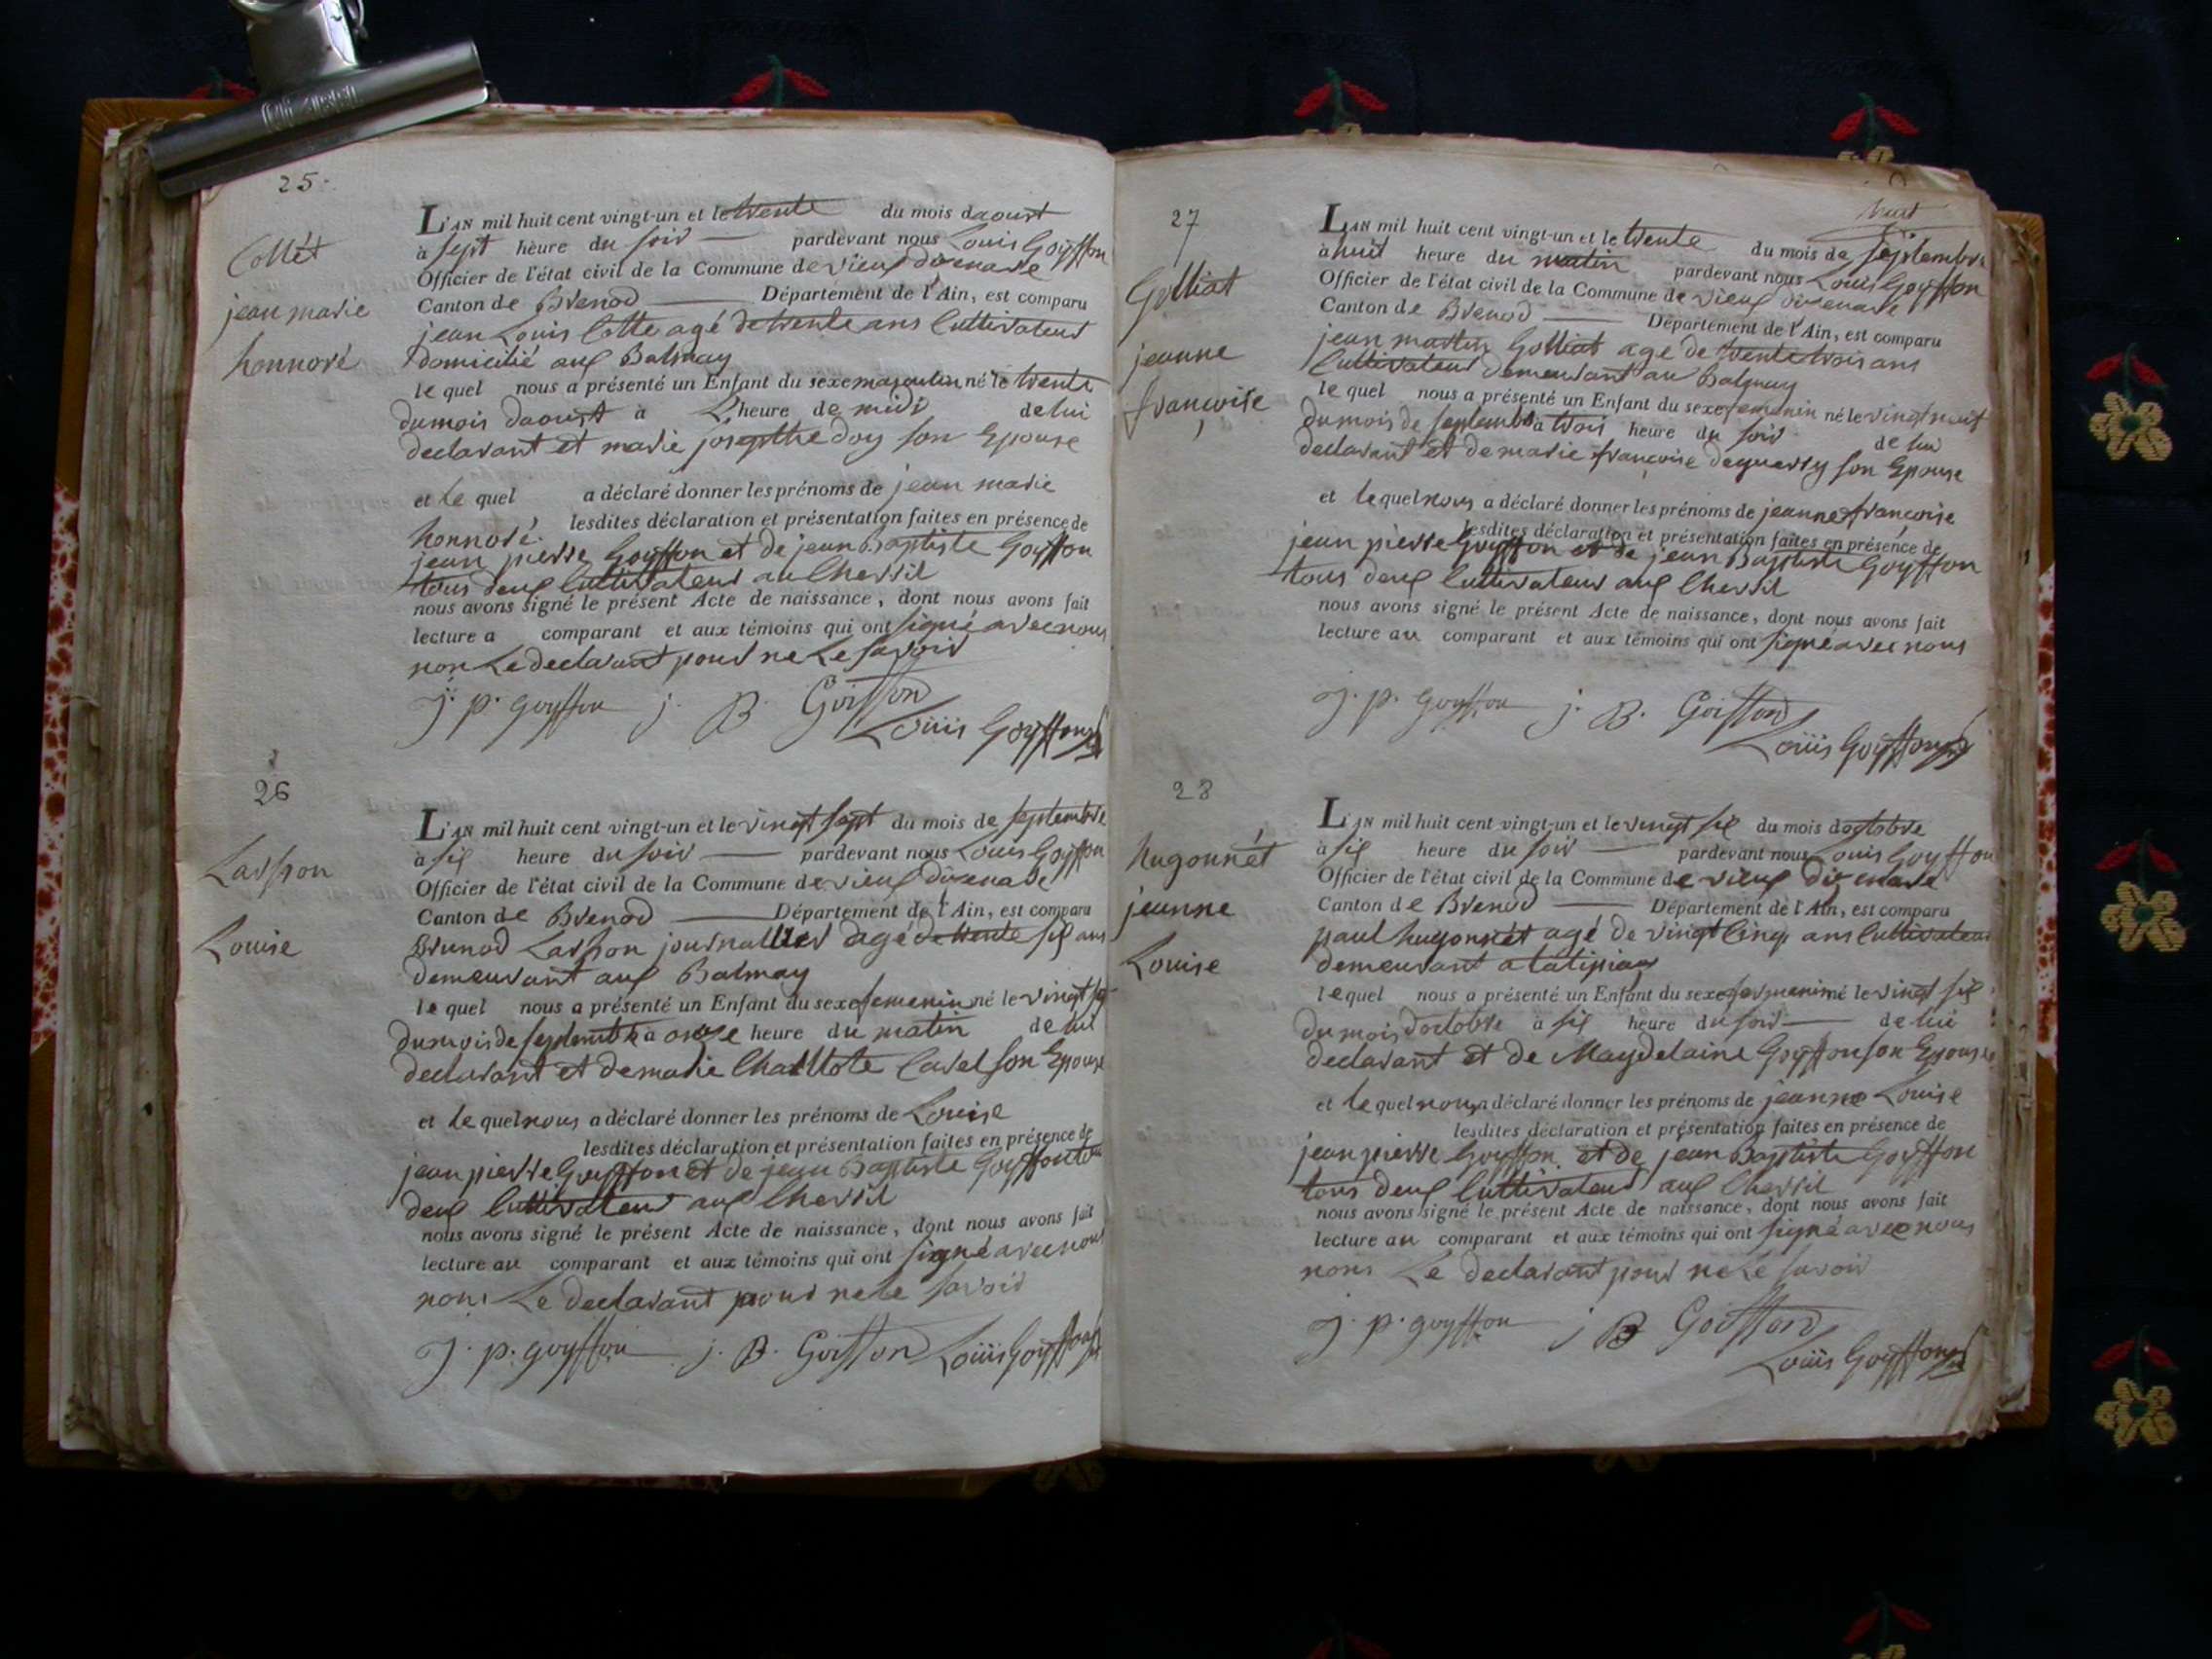 25.
Collet
jean marie
honnoré
L'AN mil huit cent vingt-un et le trente du mois daoust
à sept heure du soir pardevant nous Louis Goÿffon
Officier de l'état civil de la Commune de vieux dizenave
Canton de Brenod Département de l'Ain, est comparu
jean Louis Collet agé de trente ans Cultivateur
domicilié aux Balmay
le quel nous a présenté un Enfant du sexe masculin né le trente
du mois daoust à L'heure de midi de lui
declarant et marie josepthe doy son Epouse
et Le quel a déclaré donner les prénoms de jean marie
honnoré. lesdites déclaration et présentation faites en présence de
jean pierre Goyffon et de jean Baptiste Goyffon
tous deux Cultivateur au Chevril
nous avons signé le présent Acte de naissance, dont nous avons fait
lecture a comparant et aux témoins qui ont signé avec nous
non Le declarant pour ne Le savoir
J. p. goyffon j. B. Goiffon
Louis Goÿffon
26
Larson
Louise
L'AN mil huit cent vingt-un et le vingt sept du mois de septembre
à six heure du soir pardevant nous Louis Goÿffon
Officier de l'état civil de la Commune de vieux dizenave
Canton de Brenod Département de l'Ain, est comparu
Brunod journallier agé de trente six ans
demeurant aux Balmay
le quel nous a présenté un Enfant du sexe femenin né le vingt
du mois de septembre à onze heure du matin de lui
declarant et de marie Charllote Cavel son Epouse
et le quel nous a déclaré donner les prénoms de Louise
lesdites déclaration et présentation faites en présence de
jean pierre Goyffon et de jean Baptiste Goyffon tous
deux Cultivateur aux Chevril
nous avons signé le présent Acte de naissance, dont nous avons fait
lecture au comparant et aux témoins qui ont signé avec nous
non Le declarant pour ne le savoir
J. p. goyffon j. B. Goiffon Louis Goyffon
27
Golliat
jeanne
françoise
L'AN mil huit cent vingt-un et le trente du mois de septembre
à huit heure du matin pardevant nous Louis Goyffon
Officier de l'état civil de la Commune de vieux dizenave
Canton de Brenod Département de l'Ain, est comparu
jean martin Golliat age de trente trois ans
Cultivateur demeurant au Balmay
le quel nous a présenté un Enfant du sexe femenin né le vingt neuf
du mois de septembre à trois heure du soir de lui
declarant et de marie françoise deguerry son Epouse
et le quel nous a déclaré donner les prénoms de jeanne françoise
lesdites déclaration et présentation faites en présence de
jean pierre Goyffon et de jean Baptiste Goyffon
tous deux Cultivateur aux Chevril
nous avons signé le présent Acte de naissance, dont nous avons fait
lecture au comparant et aux témoins qui ont signé avec nous
J. p. Goyffon j. B. Goiffon
Louis Goyffon
28
hugonnét
jeanne
Louise
L'AN mil huit cent vingt-un et le vingt six du mois doctobre
à six heure du soir pardevant nous Louis Goyffon
Officier de l'état civil de la Commune de vieux dizenave
Canton de Brenod Département de l'Ain, est comparu
paul hugonnét agé de vingt cinq ans Cultivateur
demeurant a
le quel nous a présenté un Enfant du sexe femenin né le vingt six
du mois doctobre à six heure du soir de lui
declarant et de Magdelaine Goyffon son Epouse
et le quel nous a déclaré donner les prénoms de jeanne Louise
lesdites déclaration et présentation faites en présence de
jean pierre Goyffon et de jean Baptiste Goyffon
tous deux Cultivateur aux Chevril
nous avons signé le présent Acte de naissance, dont nous avons fait
lecture au comparant et aux témoins qui ont signé avec nous
non Le declarant pour ne Le savoir
J. p. goyffon j B Goiffon
Louis Goyffon